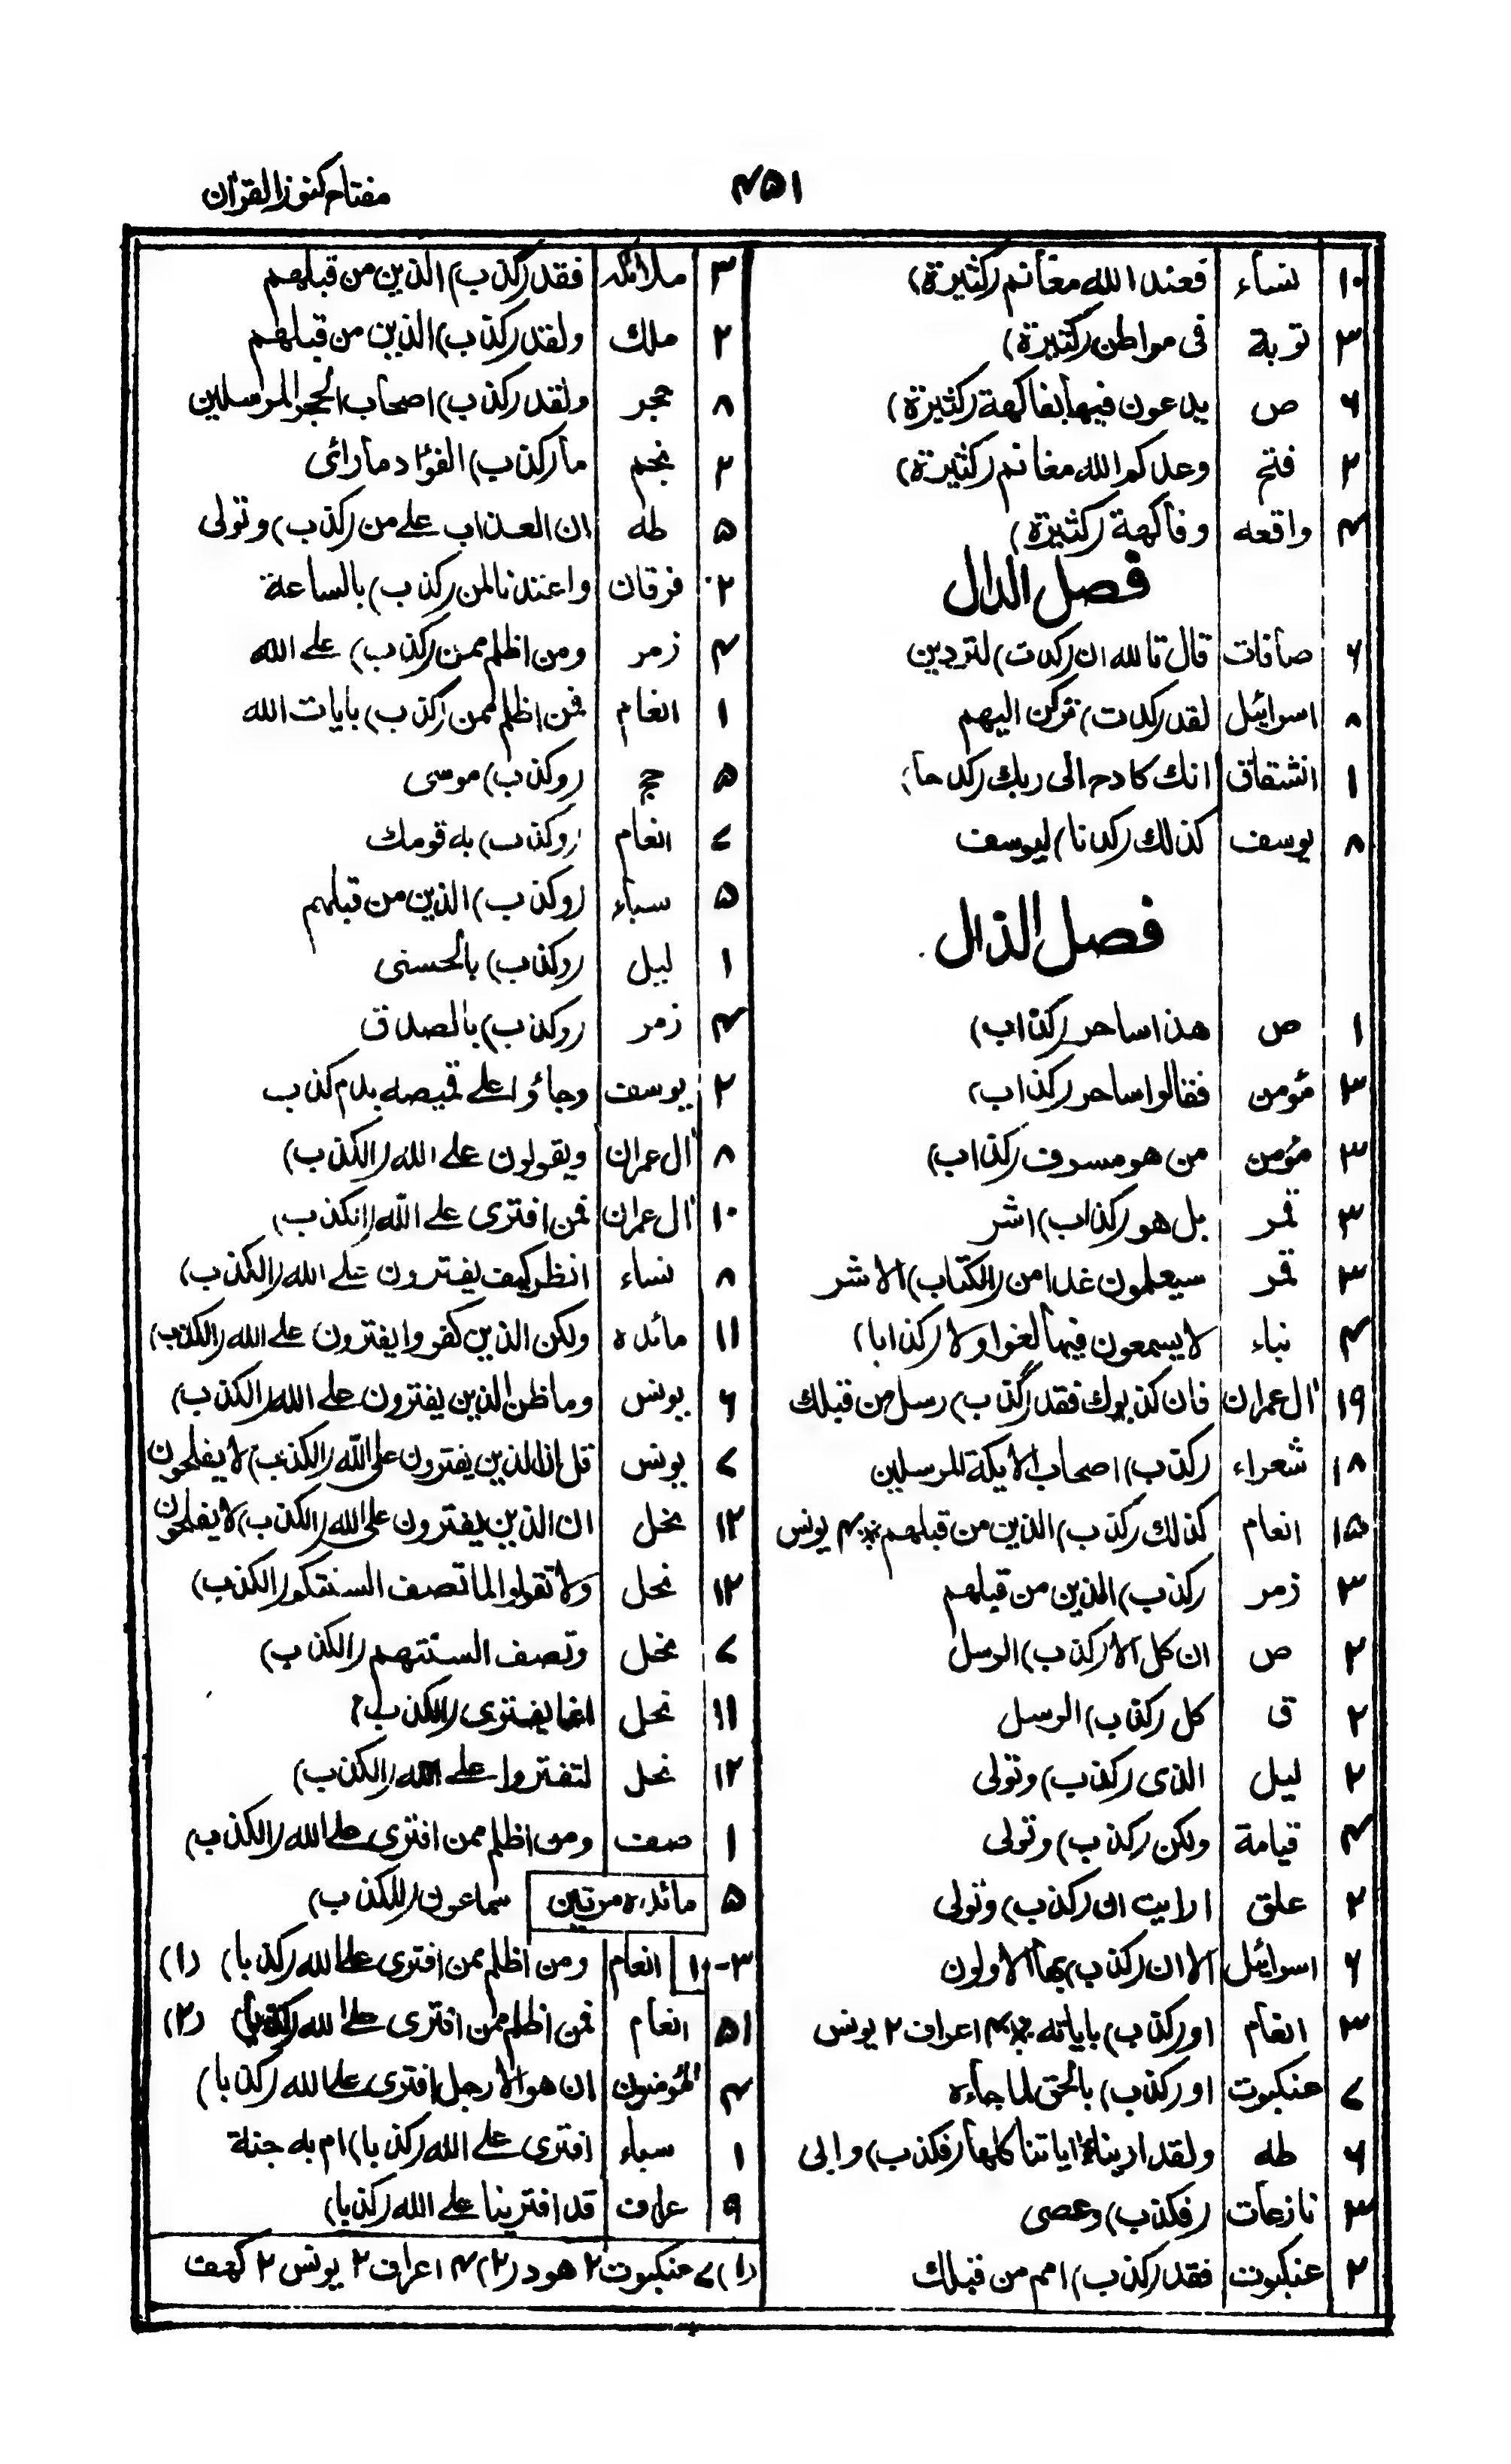 ۴۵۱
مفتاح کنوز القرآن
۱۰ نساء فعند الله مغانم (کثیرة)
۳ توبة فی مواطن (کثیرة)
۶ ص یدعون فیها بفاکهة (کثیرة)
۲ فتح وعدکم الله مغانم (کثیرة)
۴ واقعه وفاکهة (کثیرة)
فصل الدال
۶ صافات قال تالله ان (کدت) لتردین
۸ اسرائیل لقد (کدت) ترکن الیهم
۱ انشقاق انك کادح الی ربك (کدحا)
۸ یوسف کذلك (کدنا) لیوسف
فصل الذال
۱ ص هذا ساحر (کذاب)
۳ مؤمن فقالوا ساحر (کذاب)
۳ مؤمن من هو مسرف (کذاب)
۳ قمر بل هو (کذاب) اشر
۳ قمر سیعلمون غدا من (الکتاب) الاشر
۴ نباء لا یسمعون فیها لغوا ولا (کذابا)
۱۹ آل عمران فان کذبوك فقد (کذب) رسل من قبلك
۱۸ شعراء (کذب) اصحاب الایکة المرسلین
۱۵ انعام کذلك (کذب) الذین من قبلهم ۴ یونس
۳ زمر (کذب) الذین من قبلهم
۲ ص ان کل الا (کذب) الرسل
۲ ق کل (کذب) الرسل
۲ لیل الذی (کذب) وتولی
۴ قیامة ولکن (کذب) وتولی
۲ علق ارایت ان (کذب) وتولی
۶ اسرائیل الا ان (کذب) بها الاولون
۳ انعام او (کذب) بایاته ۴ اعراف ۲ یونس
۷ عنکبوت او (کذب) بالحق لما جاءه
۶ طه ولقد اریناه ایاتنا کلها (فکذب) وابی
۳ نازعات (فکذب) وعصی
۲ عنکبوت فقد (کذب) امم من قبلك
۳ ملائکه فقد (کذب) الذین من قبلهم
۲ ملك ولقد (کذب) الذین من قبلهم
۸ حجر ولقد (کذب) اصحاب الحجر المرسلین
۲ نجم ما (کذب) الفؤاد ما رائی
۵ طه ان العذاب علے من (کذب) وتولی
۲ فرقان واعتدنا لمن (کذب) بالساعة
۴ زمر ومن اظلم ممن (کذب) علے الله
۱ انعام فمن اظلم ممن (کذب) بایات الله
۵ حج (وکذب) موسی
۷ انعام (وکذب) به قومك
۵ سباء (وکذب) الذین من قبلهم
۱ لیل (وکذب) بالحسنی
۴ زمر (وکذب) بالصدق
۲ یوسف وجاؤا علے قمیصه بدم کذب
۸ آل عمران ویقولون علے الله (الکذب)
۱۰ آل عمران فمن افتری علے الله (الکذب)
۸ نساء انظر کیف یفترون علے الله (الکذب)
۱۱ مائده ولکن الذین کفروا یفترون علے الله (الکذب)
۶ یونس وما ظن الذین یفترون علے الله (الکذب)
۷ یونس قل ان الذین یفترون علی الله (الکذب) لا یفلحون
۱۲ نحل ان الذین یفترون علی الله (الکذب) لا یفلحون
۱۲ نحل ولا تقولوا لما تصف السنتکم (الکذب)
۷ نحل وتصف السنتهم (الکذب)
۱۱ نحل انما یفتری (الکذب)
۱۲ نحل لتفتروا علے الله (الکذب)
۱ صف ومن اظلم ممن افتری علے الله (الکذب)
۵ مائده مرتین سماعون (للکذب)
۳-۱۰ انعام ومن اظلم ممن افتری علے الله (کذبا) (۱)
۱۵ انعام فمن اظلم ممن افتری علے الله (کذبا) (۲)
۴ المؤمنون ان هو الا رجل افتری علے الله (کذبا)
۱ سباء افتری علے الله (کذبا) ام به جنة
۹ عراف قد افترینا علے الله (کذبا)
(۱) ۷ عنکبوت ۲ هود (۲) ۴ اعراف ۲ یونس ۲ کهف